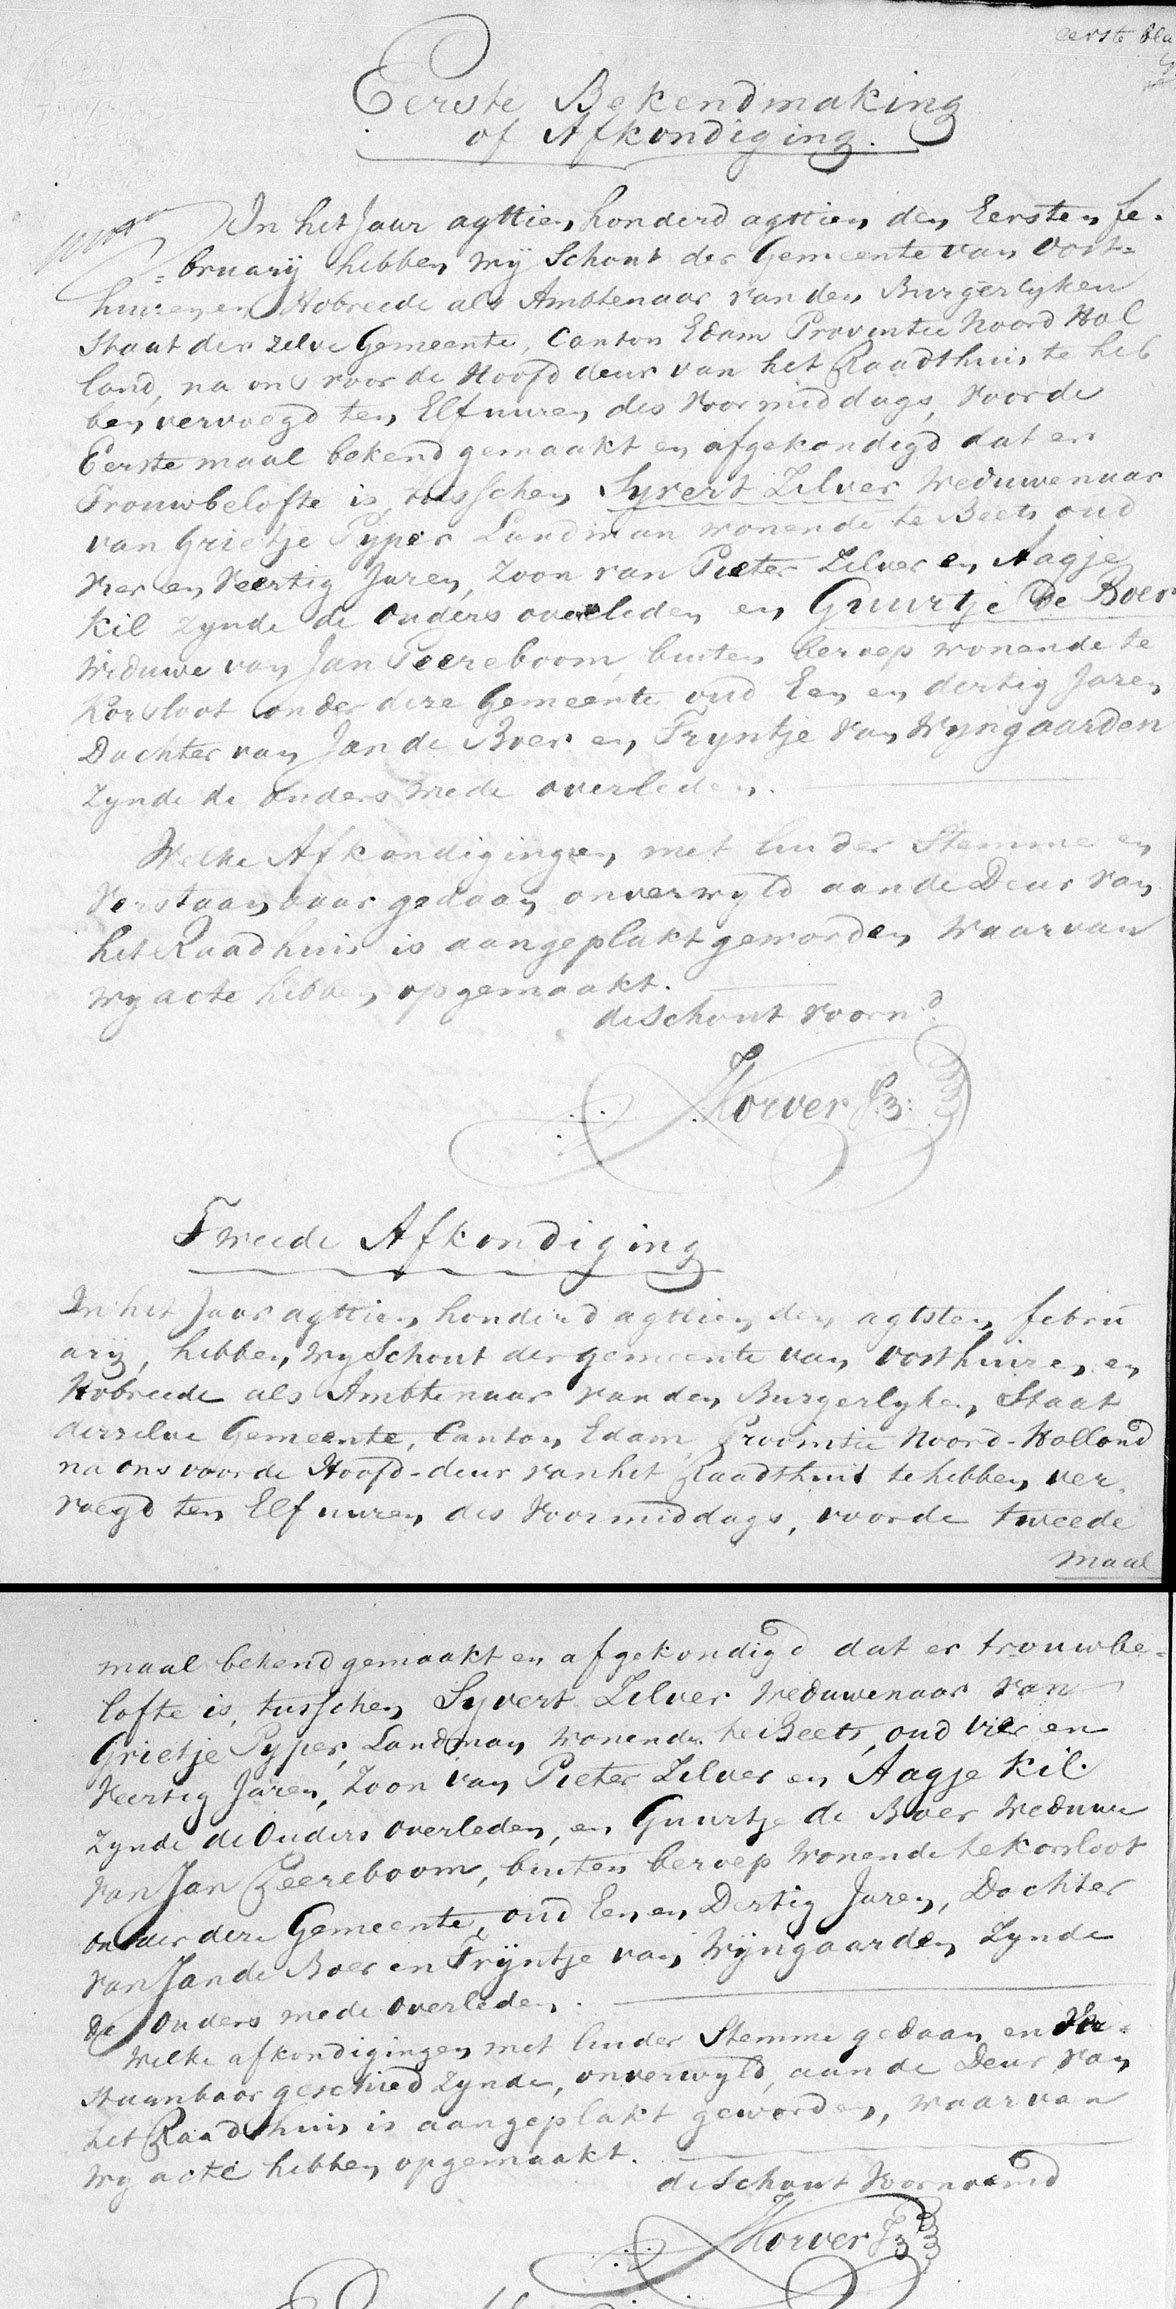 eerste bla
Eerste Bekendmaking
of Afkondiging.
In het Jaar agttien honderd agttien den Eersten fe-
bruarij hebben wij Schout der Gemeente van Oost-
huizen en Hobreede als Ambtenaar van den Burgerlyken
Staat der zelve Gemeente, Canton Edam Provintie Noord Hol
land, na ons voor de Hoofd deur van het Raadthuis te heb
ben vervoegd ten Elf uuren des voormiddags, voor de
Eerste maal bekend gemaakt en afgekondigd dat er
Trouwbelofte is, tusschen Syvert Zilver Weduwenaar
van Grietje Pyper Landman wonende te Beets oud
vier en Veertig Jaren, Zoon van Pieter Zilver en Aagje
Kil zynde de Ouders overleden en Guurtje De Boer
Weduwe van Jan Peereboom, buiten beroep wonende te
Korsloot onder deze Gemeente oud Een en dertig Jaren
Dochter van Jan de Boer en Tryntje Van Wyngaarden
Zynde de Ouders mede overleden.
Welke Afkondigingen, met luider Stemme en
Verstaanbaar gedaan onverwyld aan de Deur van
het Raadhuis is aangeplakt geworden Waarvan
wy acte hebben opgemaakt.
de Schout voornd.
Korver Jz:
Tweede Afkondiging
In het Jaar agttien honderd agttien den agtsten febru
arij, hebben wy Schout der gemeente van Oosthuizen en
Hobreede als Ambtenaar van den Burgerlyken Staat
derzelve Gemeente, Canton Edam, Provintie Noord-Holland
na ons voor de Hoofd-deur van het Raadthuis te hebben ver-
voegd ten Elf uuren des Voormiddags, voor de tweede
maal
maal bekend gemaakt en afgekondigd dat er trouwbe-
lofte is, tusschen Syvert Zilver Weduwenaar van
Grietje Pyper, Landman wonende te Beets, oud vier en
Veertig Jaren, Zoon van Pieter Zilver en Aagje Kil.
Zynde de Ouders overleden, en Guurtje de Boer Weduwe
van Jan Peereboom, buiten beroep Wonende te Korsloot
onder deze Gemeente, oud Een en Dertig Jaren, Dochter
van Jan de Boer en Trijntje van Wijngaarden Zynde
de Ouders mede overleden.
Welke afkondigingen met luider Stemme gedaan en Ver-
staanbaar geschied zynde, onverwyld, aan de Deur van
het Raadthuis is aangeplakt geworden, waarvan
wy acte hebben opgemaakt.
de Schout Voornoemd
Korver Jz